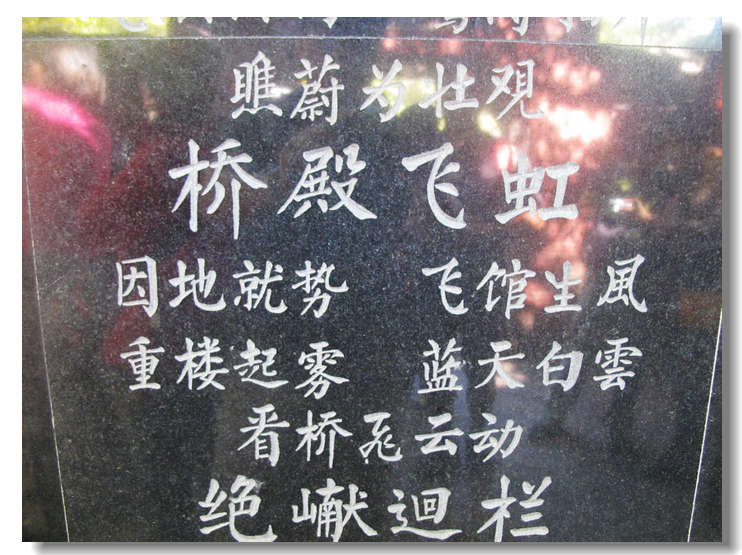 瞧蔚为壮观
桥殿飞虹
因地就势 飞馆生風
重楼起雾 蓝天白雲
看桥飛云动
绝巘迴栏